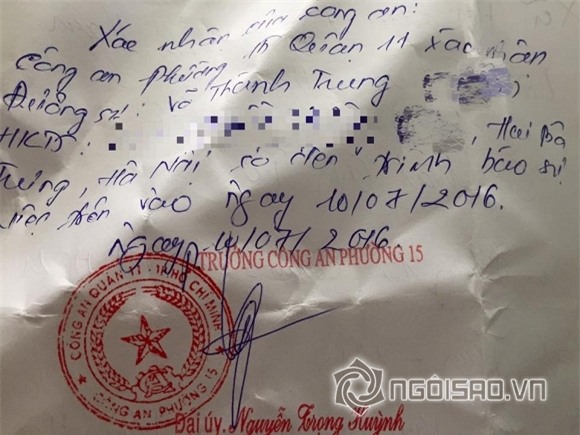 Xác nhận của công an:
Công an phường 15 Quận 11 xác nhận
Đương sự: Võ Thành Trung
HKTT: , Hai Bà
Trưng, Hà Nội có đến trình báo sự
việc trên vào ngày 10/07/2016.
Ngày 14/07/2016.
TRƯỞNG CÔNG AN PHƯỜNG 15
CÔNG AN QUẬN 11 - TP HỒ CHÍ MINH
CÔNG AN PHƯỜNG 15
NGÔISAO.VN
Đại úy. Nguyễn Trọng Huỳnh